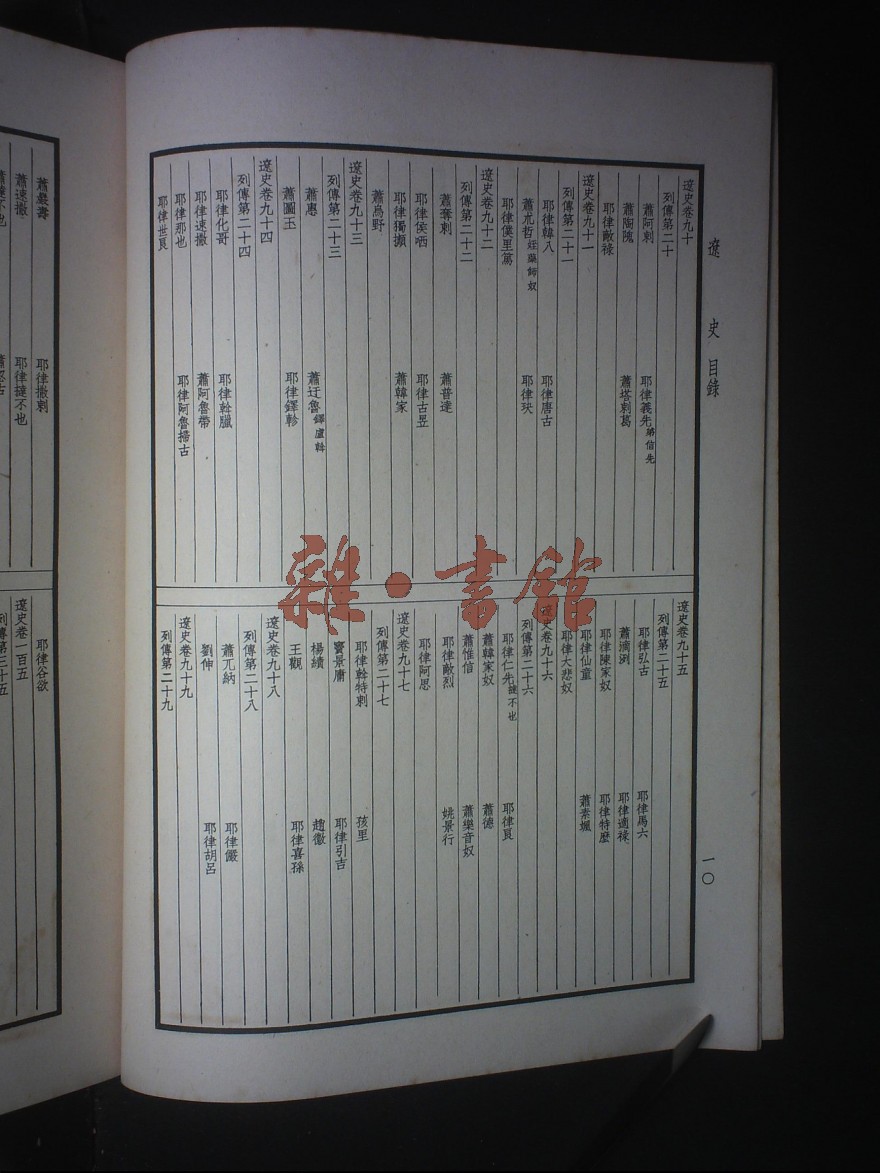 遼史 目錄
一〇
遼史卷九十
列傳第二十
蕭阿剌 耶律義先弟信先
蕭陶隗 蕭塔剌葛
耶律敵祿
遼史卷九十一
列傳第二十一
耶律韓八 耶律唐古
蕭朮哲姪藥師奴 耶律玦
耶律僕里篤
遼史卷九十二
列傳第二十二
蕭奪剌 蕭普達
耶律侯哂 耶律古昱
耶律獨攧 蕭韓家
蕭烏野
遼史卷九十三
列傳第二十三
蕭惠 蕭迂魯鐸盧斡
蕭圖玉 耶律鐸軫
遼史卷九十四
列傳第二十四
耶律化哥 耶律斡臘
耶律速撒 蕭阿魯帶
耶律那也 耶律阿魯掃古
耶律世良
遼史卷九十五
列傳第二十五
耶律弘古 耶律馬六
蕭滴冽 耶律適祿
耶律陳家奴 耶律特麼
耶律仙童 蕭素颯
耶律大悲奴
遼史卷九十六
列傳第二十六
耶律仁先撻不也 耶律良
蕭韓家奴 蕭德
蕭惟信 蕭樂音奴
耶律敵烈 姚景行
耶律阿思
遼史卷九十七
列傳第二十七
耶律斡特剌 孩里
竇景庸 耶律引吉
楊績 趙徽
王觀 耶律喜孫
遼史卷九十八
列傳第二十八
蕭兀納 耶律儼
劉伸 耶律胡呂
遼史卷九十九
列傳第二十九
蕭巖壽 耶律撒剌
蕭速撒 耶律撻不也
耶律谷欲
遼史卷一百五
列傳第三十五
雜·書館